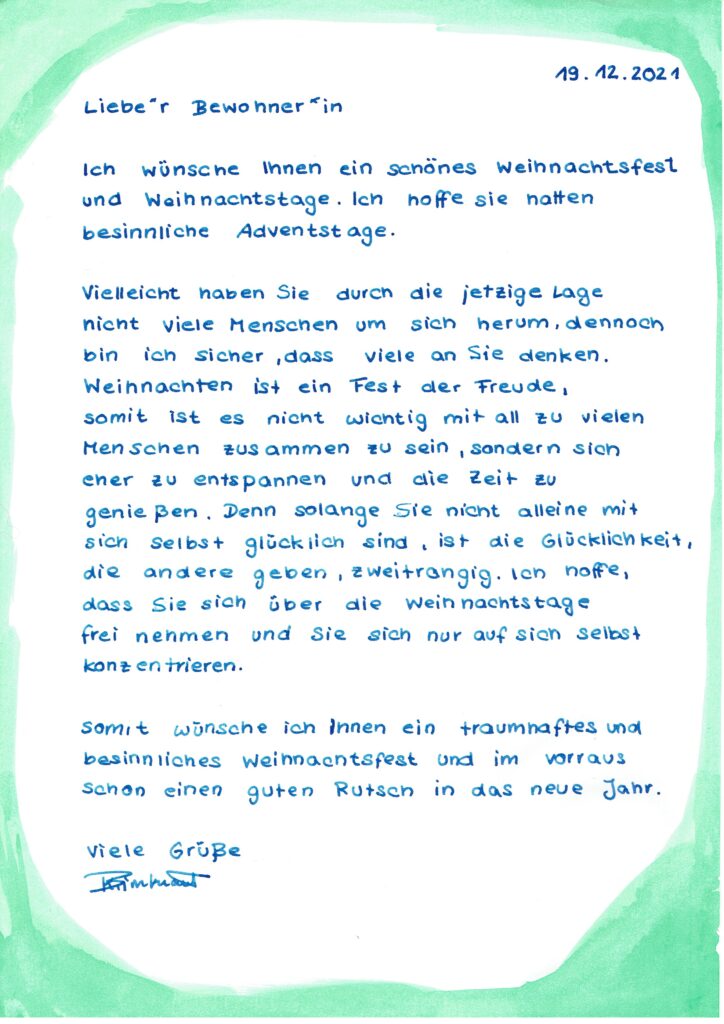 19.12.2021
Liebe*r Bewohner*in
Ich wünsche Ihnen ein schönes Weihnachtsfest
und Weihnachtstage. Ich hoffe sie hatten
besinnliche Adventstage.
Vielleicht haben Sie durch die jetzige Lage
nicht viele Menschen um sich herum, dennoch
bin ich sicher, dass viele an Sie denken.
Weihnachten ist ein Fest der Freude,
somit ist es nicht wichtig mit all zu vielen
Menschen zusammen zu sein, sondern sich
eher zu entspannen und die Zeit zu
genießen. Denn solange Sie nicht alleine mit
sich selbst glücklich sind, ist die Glücklichkeit,
die andere geben, zweitrangig. Ich hoffe,
dass Sie sich über die Weihnachtstage
frei nehmen und Sie sich nur auf sich selbst
konzentrieren.
Somit wünsche ich Ihnen ein traumhaftes und
besinnliches Weihnachtsfest und im vorraus
schon einen guten Rutsch in das neue Jahr.
Viele Grüße